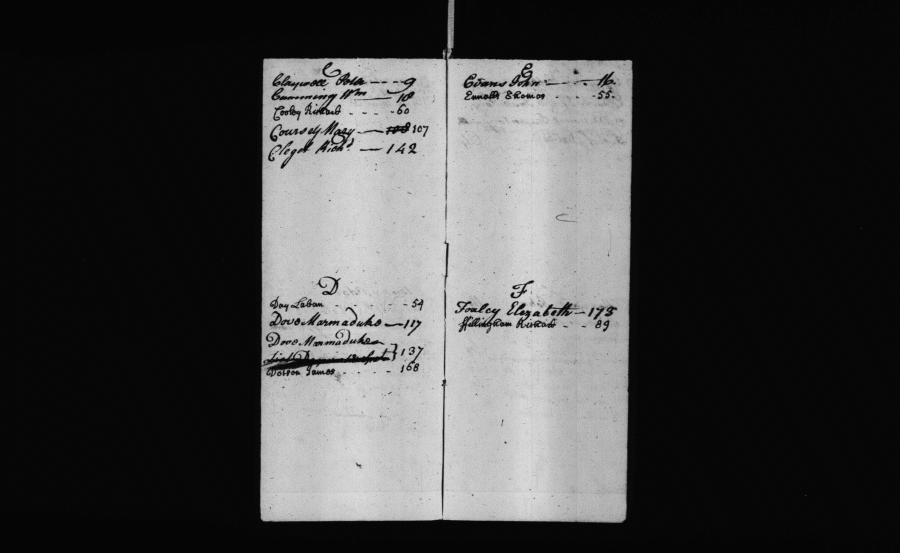 C
Claywell Peter - - - - 9
Cumming Wm — 18
Cooley Richard - - - - 60
Coursey Mary — 108 107
Cleget Richd. — 142
D
Day Laban - - - - - - 54
Dove Marmaduke — 117
Dove Marmaduke
137
Dotson James - - - - - 168
E
Evans John — - - 16
Ennalls Thomas - - - 55
F
Foxley Elizabeth — 175
ffillingham Richard - - - 89